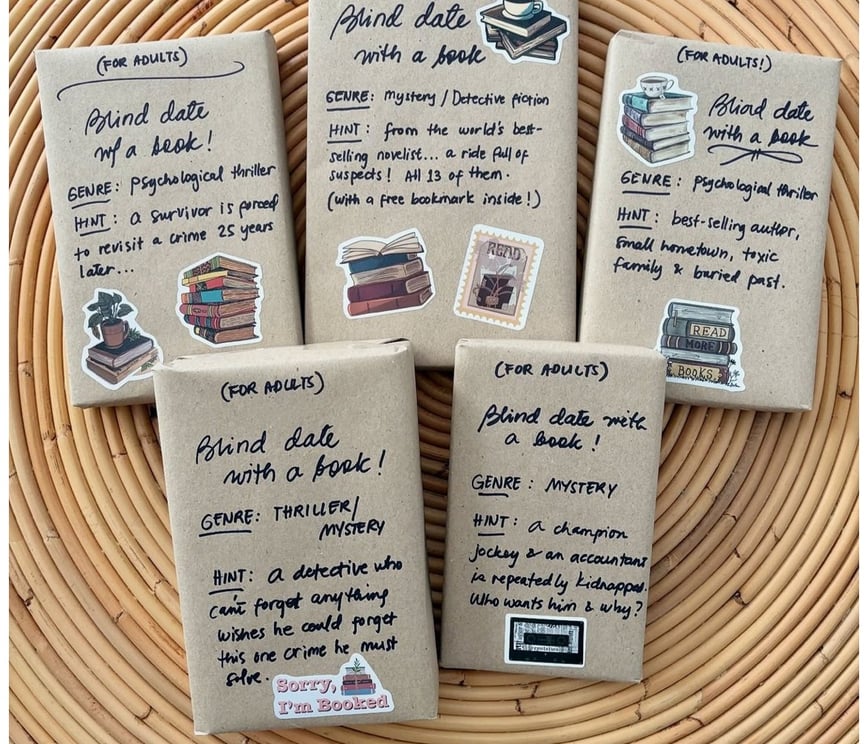 (FOR ADULTS)
Blind date
w/ a book!
GENRE: Psychological thriller
HINT: a survivor is forced
to revisit a crime 25 years
later...
Blind date
with a book
GENRE: Mystery / Detective fiction
HINT: from the world's best-
selling novelist... a ride full of
suspects! All 13 of them.
(with a free bookmark inside!)
READ
(FOR ADULTS!)
Blind date
with a book
GENRE: psychological thriller
HINT: best-selling author,
small hometown, toxic
family & buried past.
READ
MORE
BOOKS
(FOR ADULTS)
Blind date
with a book!
GENRE: THRILLER/
MYSTERY
HINT: a detective who
can't forget anything
wishes he could forget
this one crime he must
solve.
Sorry,
I'm Booked
(FOR ADULTS)
Blind date with
a book!
GENRE: MYSTERY
HINT: a champion
jockey & an accountant
is repeatedly kidnapped.
Who wants him & why?